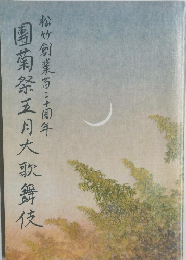 松竹創業百二十周年
團菊祭五月大歌舞伎